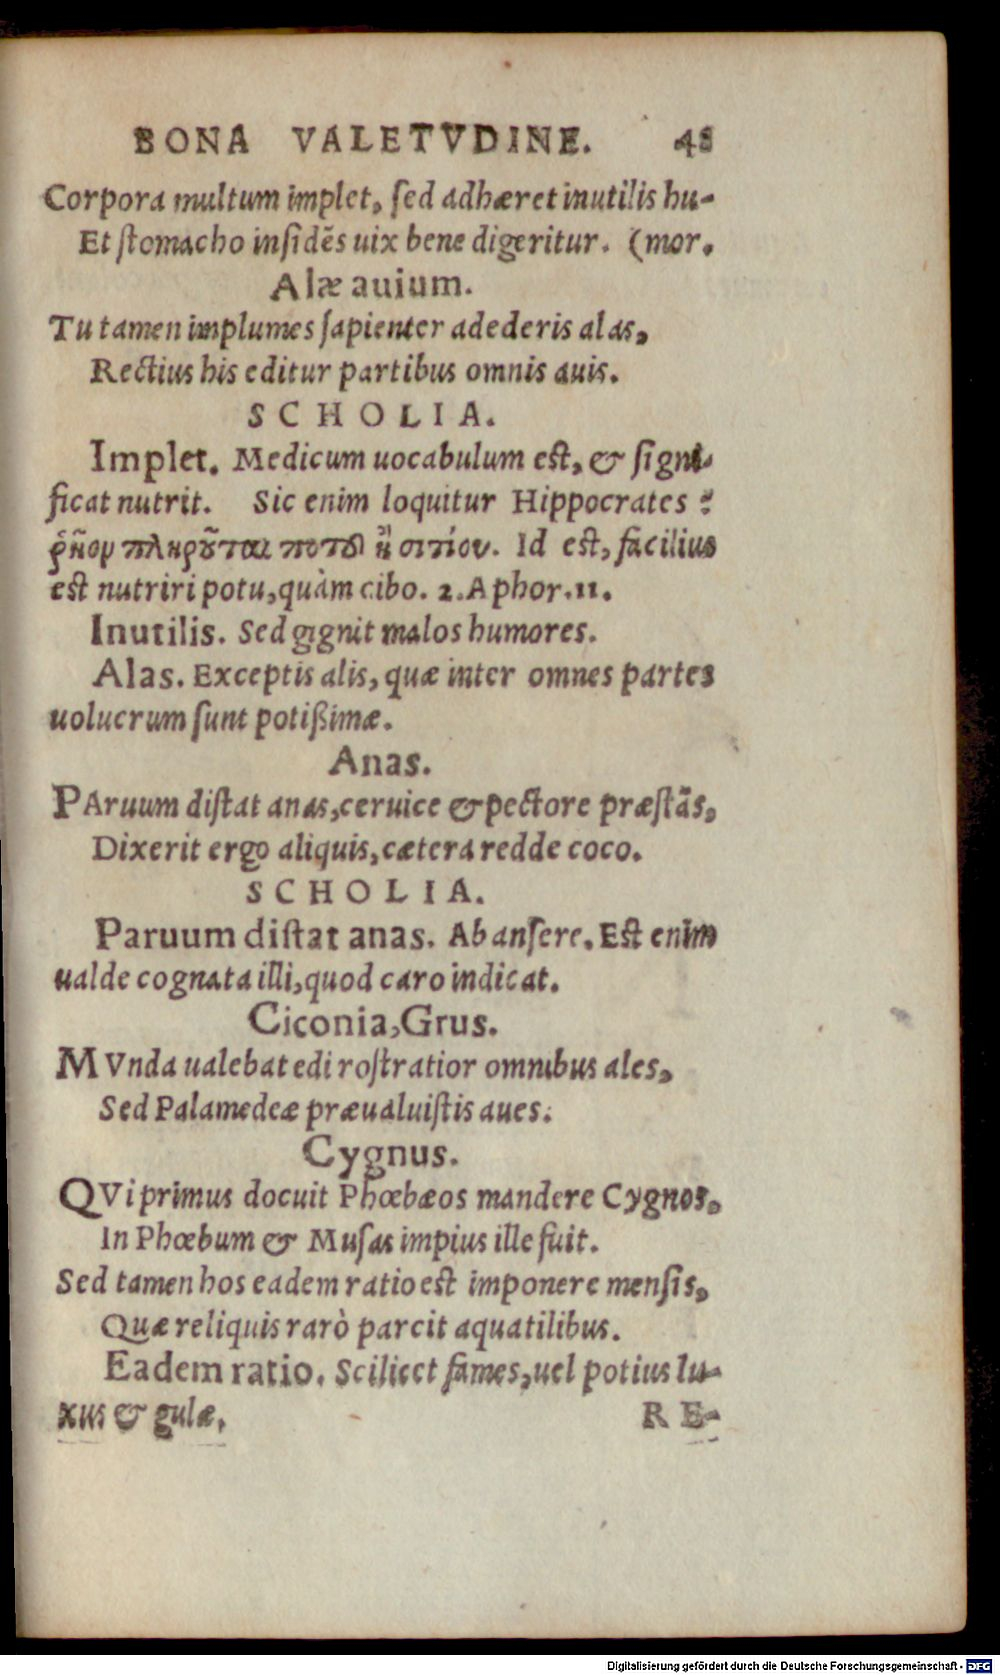 BONA VALETVDINE. 48
Corpora multum implet, ſed adhæret inutilis hu-
Et ſtomacho inſidẽs uix bene digeritur. (mor.
Alæ auium.
Tu tamen implumes ſapienter adederis alas,
Rectius his editur partibus omnis auis.
SCHOLIA.
Implet. Medicum uocabulum eſt, & ſigni-
ficat nutrit. Sic enim loquitur Hippocrates:
ῥῆον πληροῦται ποτοῦ ἢ σιτίου. Id eſt, facilius
eſt nutriri potu, quàm cibo. 2. Aphor. 11.
Inutilis. Sed gignit malos humores.
Alas. Exceptis alis, quæ inter omnes partes
uolucrum ſunt potißimæ.
Anas.
PAruum diſtat anas, ceruice & pectore præſtãs,
Dixerit ergo aliquis, cætera redde coco.
SCHOLIA.
Paruum diſtat anas. Ab anſere. Eſt enim
ualde cognata illi, quod caro indicat.
Ciconia, Grus.
MVnda ualebat edi roſtratior omnibus ales,
Sed Palamedeæ præualuiſtis aues.
Cygnus.
QVi primus docuit Phœbæos mandere Cygnos,
In Phœbum & Muſas impius ille fuit.
Sed tamen hos eadem ratio eſt imponere menſis,
Quæ reliquis rarò parcit aquatilibus.
Eadem ratio. Scilicet fames, uel potius lu-
xus & gulæ.
RE-
Digitalisierung gefördert durch die Deutsche Forschungsgemeinschaft - DFG